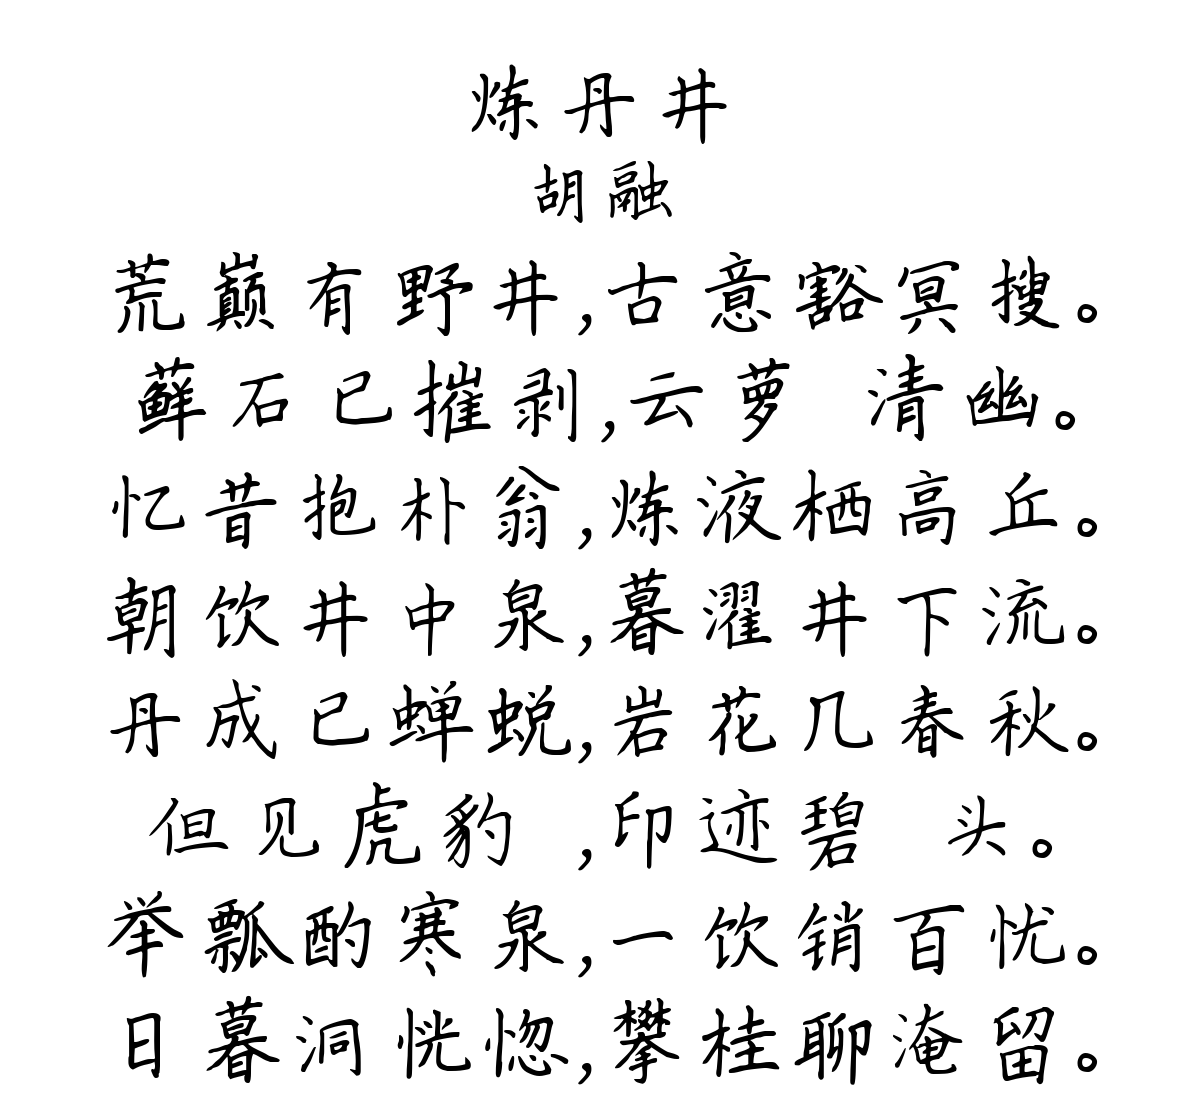 炼丹井
胡融
荒巅有野井,古意豁冥搜。
藓石已摧剥,云萝 清幽。
忆昔抱朴翁,炼液栖高丘。
朝饮井中泉,暮濯井下流。
丹成已蝉蜕,岩花几春秋。
但见虎豹 ,印迹碧 头。
举瓢酌寒泉,一饮销百忧。
日暮洞恍惚,攀桂聊淹留。